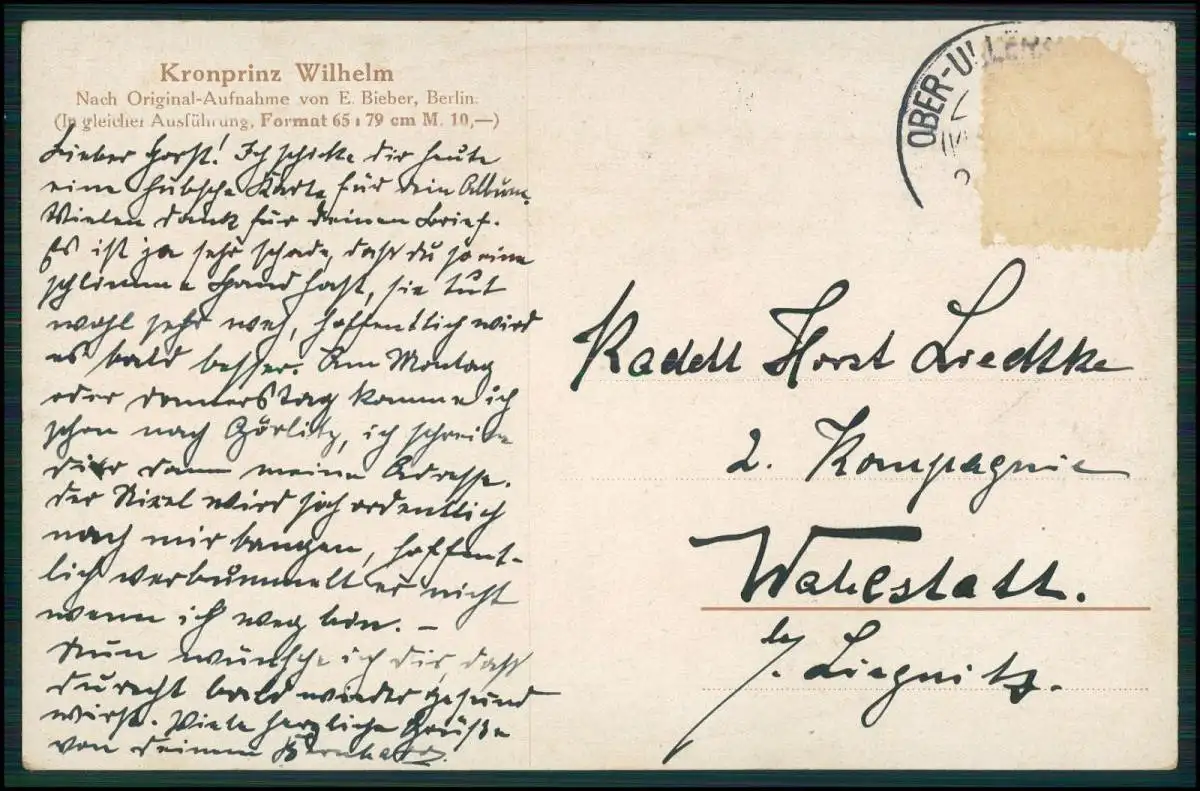 Kronprinz Wilhelm
Nach Original-Aufnahme von E. Bieber, Berlin.
(In gleicher Ausführung, Format 65 : 79 cm M. 10,—)
Lieber Horst! Ich schicke dir heute
eine hübsche Karte für dein Album.
Vielen dank für deinen Brief.
Es ist ja sehr schade, daß du so eine
schlimme Hand hast, sie tut
wohl sehr weh, hoffentlich wird
es bald besser. Am Montag
oder donnerstag komme ich
schon nach Görlitz, ich schreibe
dir dann meine Adresse.
der wird sich ordentlich
nach mir bangen, hoffent-
lich verbummelt er nicht
wenn ich weg bin. –
Nun wünsche ich dir, daß
du recht bald wieder gesund
wirst. Viele herzliche Grüße
von deinem Bernhard.
OBER-ULLERS
Kadett Horst Liedtke
2. Kompagnie
Wahlstatt.
b/. Liegnitz.